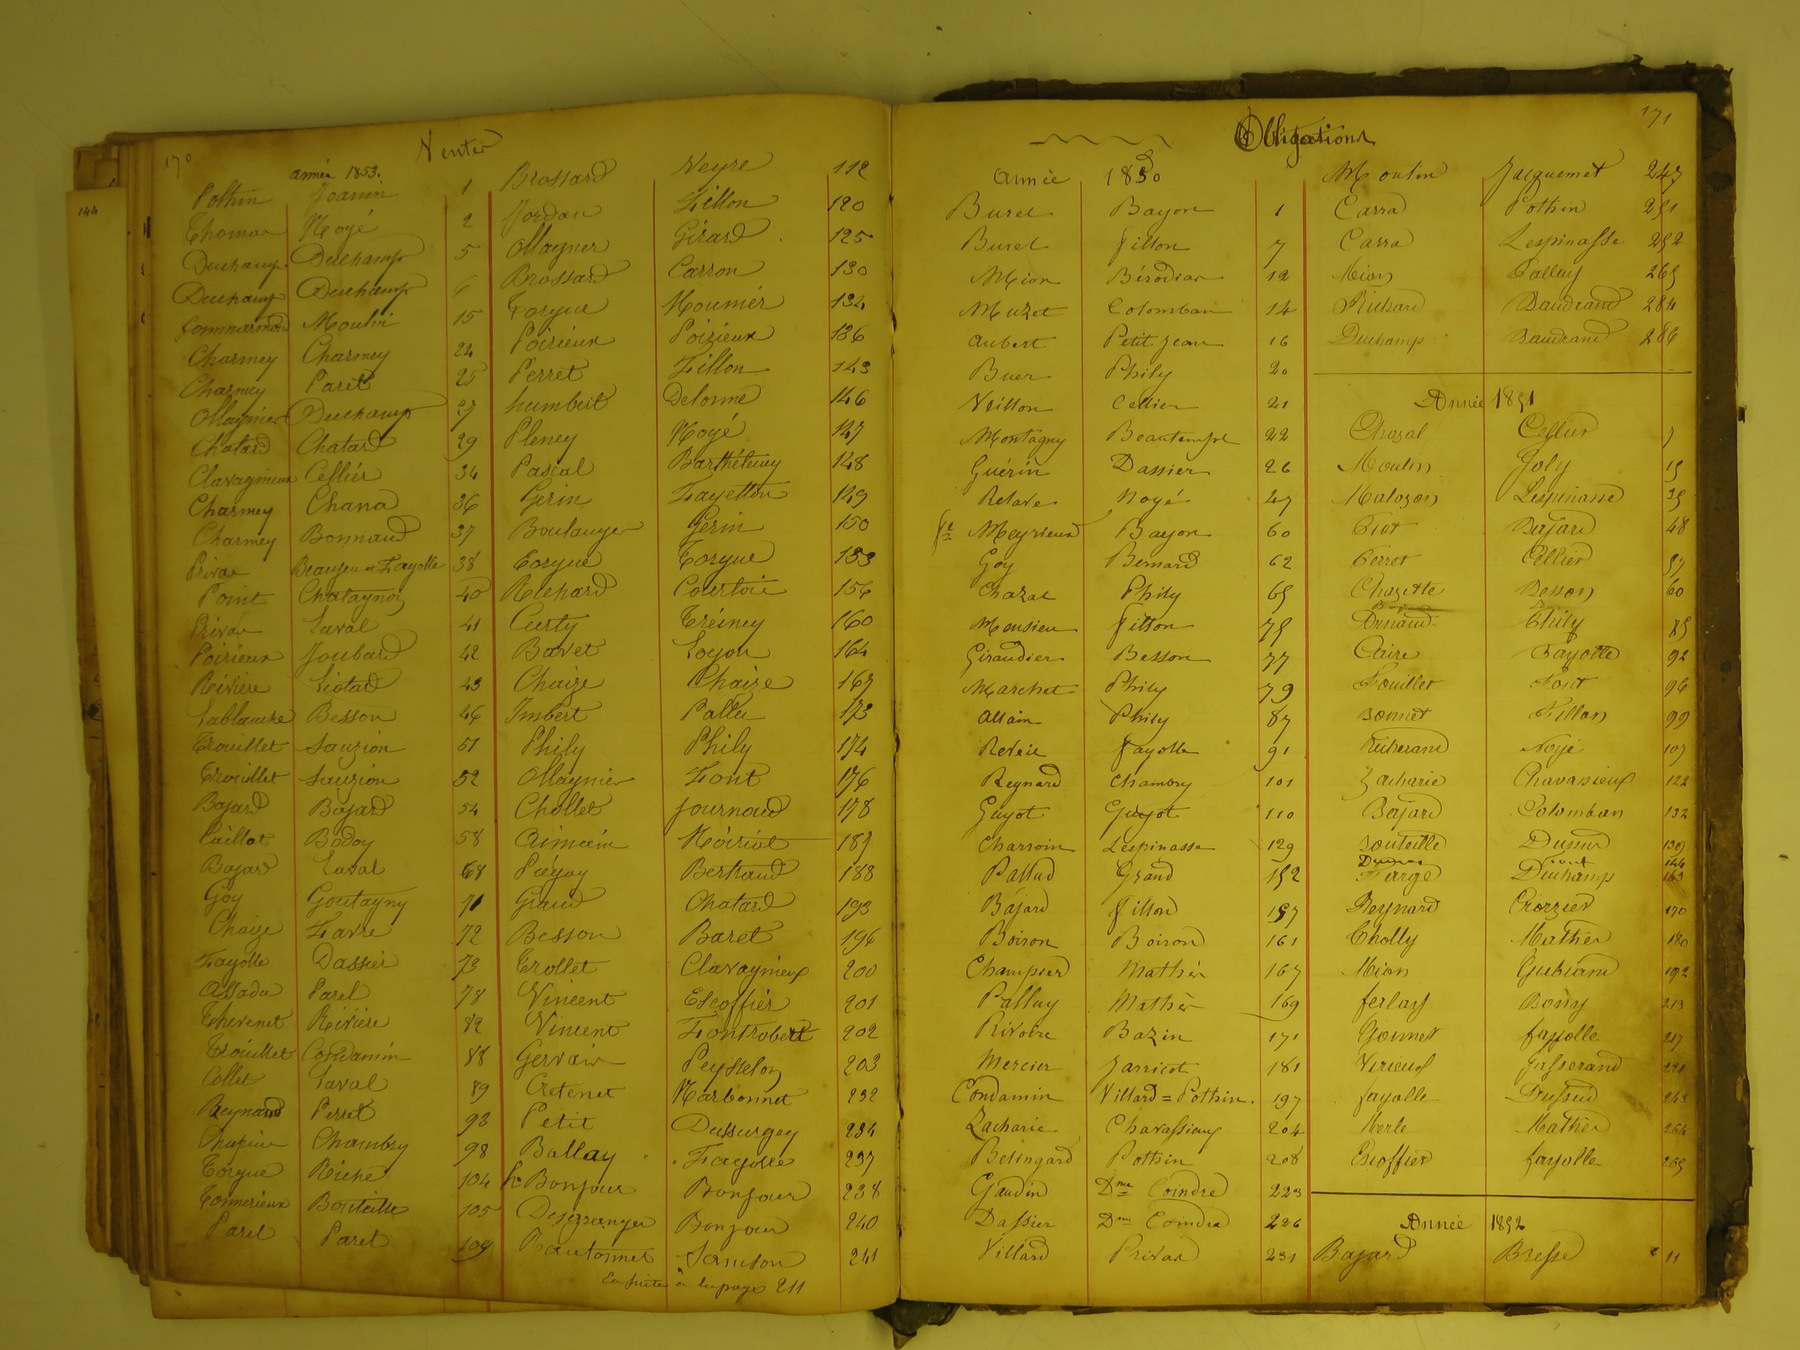 170
Ventes
année 1853.
Pothin Joannin 1
Thomas Noyé 2
Duchamp Duchamp 5
Duchamp Duchamp 6
Moulin 15
Charmey Charmey 24
Charmey Paret 25
Magnier Duchamp 27
Chatard Chatard 29
Clavagnieux Cellier 34
Charmey Chana 36
Charmey Bonnand 37
Privas Beaujeu et Fayolle 38
Point Chataignon 40
Privas Laval 41
Poirieux Joubard 42
Rivière Liotard 43
Lablanche Besson 46
Trouillet Sauzion 51
Trouillet Sauzion 52
Bajard Bajard 54
Paillot Badoy 58
Bajard Laval 68
Goy Goutagny 71
Chaize Favre 72
Fayolle Dassier 73
Assada Parel 78
Thevenet Rivière 82
Trouillet Condamin 88
Collet Laval 89
Reynard Perret 93
Chapuis Chambry 98
Torgue Riché 104
Tonnerieux Bouteille 105
Paret Paret 109
Brossard Neyre 112
Jordan Fillon 120
Magner Girard 125
Brossard Carron 130
Torgue Mounier 134
Poirieux Poirieux 136
Perret Fillon 143
humbert Delorme 146
Pleney Noyé 147
Pascal Barthélemy 148
Gerin Fayetton 149
Boulanger Gerin 150
Torgue Torgue 153
Richard Courtois 156
Curty Tréiney 160
Baret Loyon 164
Chaize Chaize 167
Imbert Pallu 173
Phily Phily 174
Magnier Font 176
Chollet Journoud 178
Aimain 187
Piégay Bertrand 188
Giraud Chatard 193
Besson Baret 196
Trollet Clavagnieux 200
Vincent Escoffier 201
Vincent Fontrobert 202
Gervais Peysselon 203
Cretenet Narbonnet 232
Petit Dussurgey 234
Ballay Fayolle 237
Bonjour Bonjour 238
Desgranges Bonjour 240
Samson 241
La suite à la page 211
171
Obligations
année 1850
Burel Bayon 1
Burel Fillon 7
Mion Bérodias 12
Muzet Colomban 14
Aubert Petit Jean 16
Buer Phily 20
Veillon Cellier 21
Montagny Beautemps 22
Guérin Dassier 26
Relave Noyé 47
Meyrieux Bayon 60
Goy Bernard 62
Chazal Phily 65
Mousieu Fillon 75
Giraudier Besson 77
Marchet Phily 79
Allain Phily 87
Fayolle 91
Reynard Chambry 101
Guyot Guyot 110
Charroin Lespinasse 129
Pallud Grand 152
Bajard Fillon 157
Boiron Boiron 161
Champier Mathir 167
Palluy Mathir 169
Rivoire Bazin 171
Mercier Jarricot 181
Condamin Villard = Pothin. 197
Zacharie Chavassieux 204
Belingard Pothin 208
Gaudin Dme Coindre 223
Dassier Dme Coindre 226
Villard Privas 231
Moulin Jacquemet 247
Carra Pothin 251
Carra Lespinasse 252
Mion Palluy 265
Richard Baudrand 284
Duchamp Baudrand 286
Année 1851
Chazal Cellier 7
Moulin Joly 15
Malozon Lespinasse 35
Piot Bajard 48
Perret Cellier 57
Chazette Besson 60
Arnaud Phily 85
Claire Fayolle 92
Souillet Font 96
Bonnet Fillon 99
Noyé 107
Zacharie Chavassieux 122
Bajard Colomban 132
Bouteille 139
Dumas Font 144
Farge Duchamp 163
Reynard Crozier 170
Cholly Mathir 180
Mion Gubiand 192
ferlay Bony 213
Gonnet fayolle 217
Verieux Jasserand
fayolle 243
Merle Mathir 264
Escoffier fayolle 265
Année 1852
Bajard Bresse 11
144